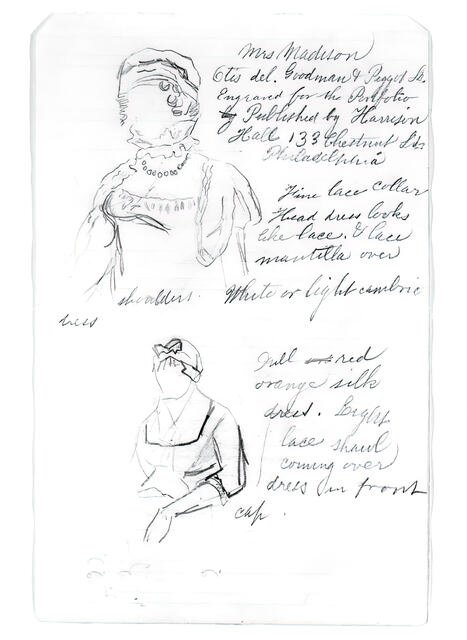 Mrs Madison
Otis del. Goodman & Piggot Sc.
Engraved for the Portfolio
Published by Harrison
Hall 133 Chestnut St.
Philadelphia
Fine lace collar
Head dress looks
like lace. & lace
mantilla over
shoulders. White or light cambric
dress
Full red
orange silk
dress. Light
lace shawl
coming over
dress in front
cap.